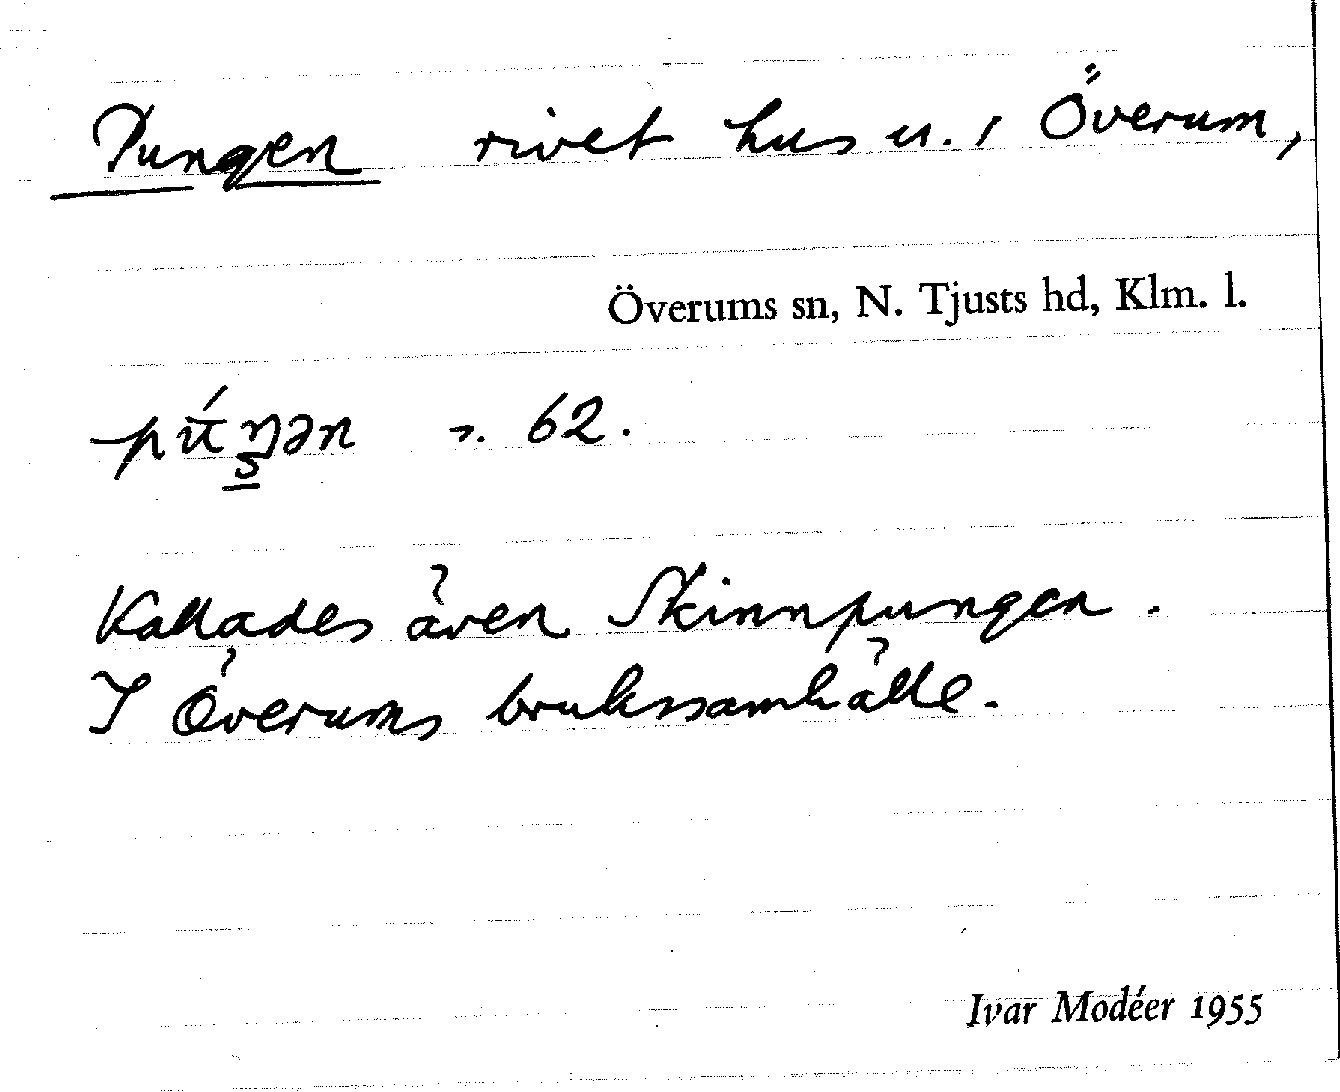 Pungen rivet hus u. 1 Överum,
Överums sn, N. Tjusts hd, Klm. l.
62.
Kallades även Skinnpungen.
I Överums brukssamhälle.
Ivar Modéer 1955